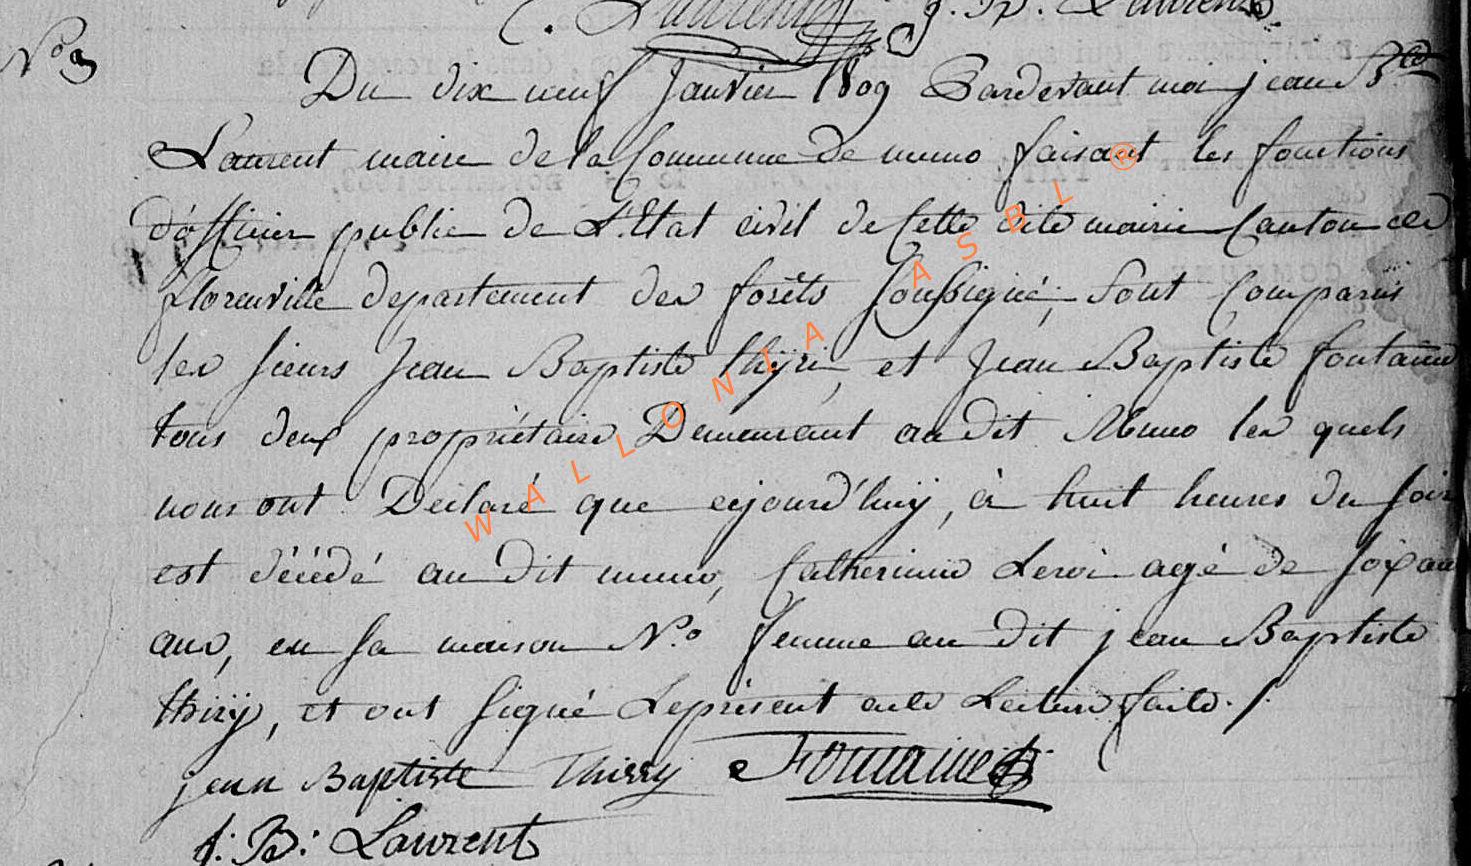 Laurent J. B. Laurent
N.o 3
Du dix neuf Janvier 1809 Pardevant moi jean B.te
Laurent maire de la Commune de muno faisant les fonctions
d'officier public de L'Etat civil de Cette dite mairie Canton de
florenville departement des forêts soussigné, sont Comparus
les sieurs Jean Baptiste thiri, et Jean Baptiste fontaine
tous deux propriétaire Demeurant audit Muno les quels
nous ont Déclaré que aujourd'huÿ, à huit heures du soir
est décédé au dit muno, Catherinne Leroi agé de soixante
ans, en sa maison N.o femme au dit jean Baptiste
thirÿ, et ont signé Le présent acte Lecture faite.
jean Baptiste Thiry Fontaine
J: B: Laurent
WALLONIA ASBL ®